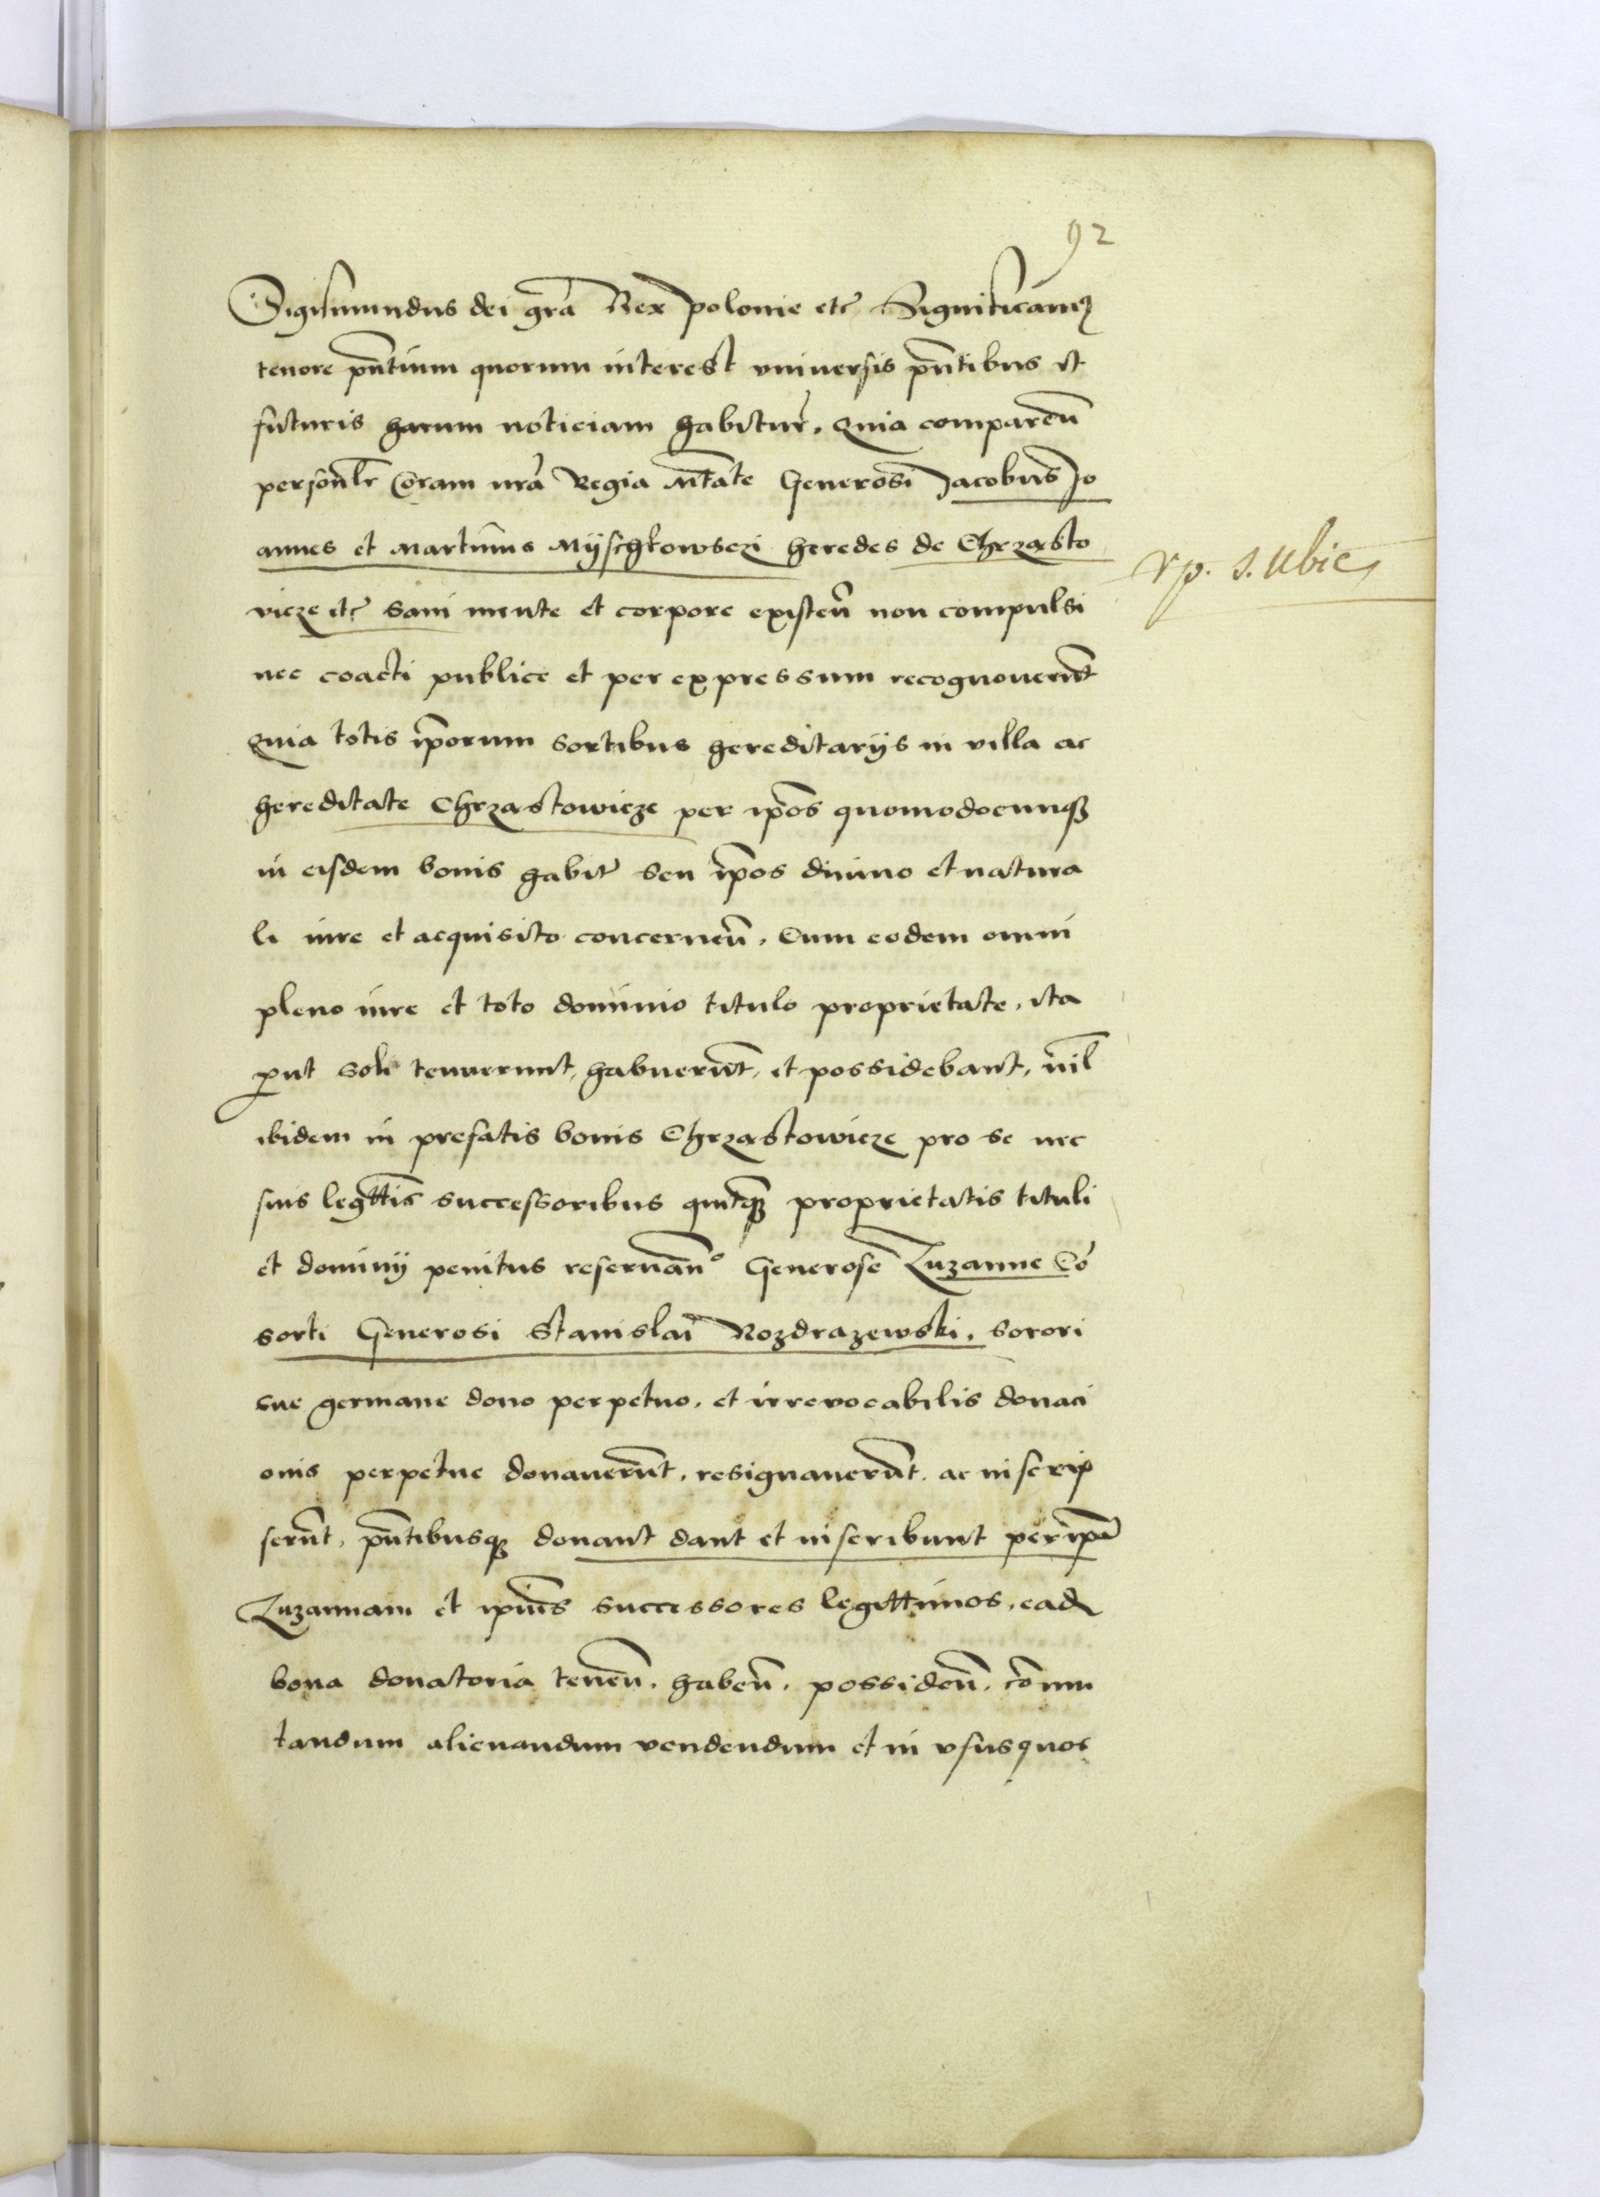 92
Sigismundus dei gra Rex polonie etc Significamus
tenore pntium quorum interest vniuersis pntibus et
futuris harum noticiam habitur. Quia comparen
personlr Coram nra Regia Mtate Generosi Jacobus Jo
annes et Martinus Mÿschkowsczi heredes de Chrzasto
vicze etc sani mente et corpore existen non compulsi
nec coacti publice et per expressum recognouerut
Quia totis iporum sortibus hereditarÿs in villa ac
hereditate Chrzastowicze per ipos quomodocunque
in eisdem bonis habit seu ipos diuino et natura
li iure et acquisito concernen. Cum eodem omni
pleno iure et toto dominio titulo proprietate. ita
put soli tenuerunt, habuerut, et possidebant, nil
ibidem in prefatis bonis Chrzastowicze pro se nec
suis legttis successoribus quitque proprietatis tituli
et dominÿ penitus reseruan° Generose Zuzanne Co
sorti Generosi Stanislai Rozdrazewski, sorori
sue germane dono perpetuo. et irreuocabilis donaci
onis perpetue donauerunt. resignauerut. ac inscrip
serut, pntibusque donant dant et inscribunt per ipa
Zuzannam et ipius successores legittimos. ead
bona donatoria tenen. haben. possiden. comu
tandum alienandum vendendum et in vsus quos
vp. s. Ubie